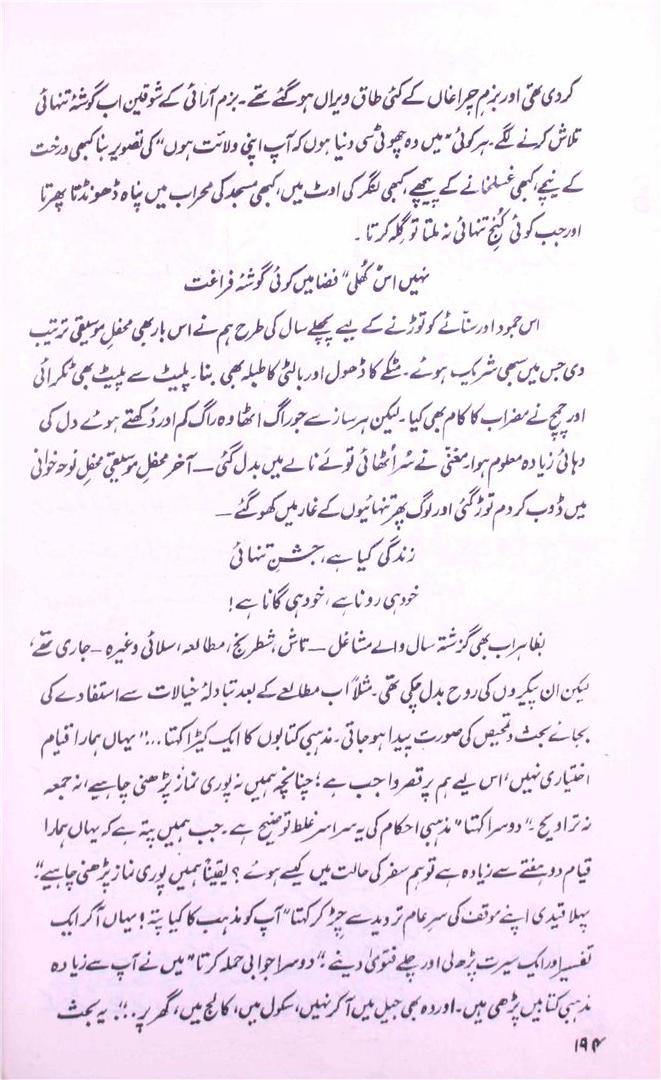 کر دی تھی اور بزمِ چراغاں کے کئی طاق ویراں ہو گئے تھے۔ بزم آرائی کے شوقین اب گوشۂ تنہائی
تلاش کرنے لگے۔ ہر کوئی "میں وہ چھوٹی سی دنیا ہوں کہ آپ اپنی ولائت ہوں" کی تصویر بنا کبھی درخت
کے نیچے، کبھی غسلخانے کے پیچھے، کبھی لنگر کی اوٹ میں، کبھی مسجد کی محراب میں پناہ ڈھونڈتا پھرتا
اور جب کوئی کُنجِ تنہائی نہ ملتا تو گِلہ کرتا۔
نہیں اس "کُھلی" فضا میں کوئی گوشۂ فراغت
اس جمود اور سنّاٹے کو توڑنے کے لیے پچھلے سال کی طرح ہم نے اس بار بھی محفلِ موسیقی ترتیب
دی جس میں سبھی شریک ہوئے۔ مٹکے کا ڈھول اور بالٹی کا طبلہ بھی بنا۔ پلیٹ سے پلیٹ بھی ٹکرائی
اور چمچ نے مضراب کا کام بھی کیا۔ لیکن ہر ساز سے جو راگ اٹھا وہ راگ کم اور دُکھتے ہوئے دل کی
دہائی زیادہ معلوم ہوا۔ مغنّی نے سُر اُٹھائی تو لَے نالے میں بدل گئی — آخر محفلِ موسیقی محفلِ نوحہ خوانی
میں ڈوب کر دم توڑ گئی اور لوگ پھر تنہائیوں کے غار میں کھو گئے —
زندگی کیا ہے، جشنِ تنہائی
خود ہی رونا ہے، خود ہی گانا ہے!
بظاہر اب بھی گزشتہ سال والے مشاغل — تاش، شطرنج، مطالعہ، سلائی وغیرہ — جاری تھے،
لیکن ان پیکروں کی روح بدل چکی تھی۔ مثلاً اب مطالعے کے بعد تبادلۂ خیالات سے استفادے کی
بجائے بحث و تمحیص کی صورت پیدا ہو جاتی۔ مذہبی کتابوں کا ایک کیڑا کہتا ... "یہاں ہمارا قیام
اختیاری نہیں، اس لیے ہم پر قصر واجب ہے؛ چنانچہ ہمیں نہ پوری نماز پڑھنی چاہیے، نہ جمعہ
نہ تراویح۔" دوسرا کہتا "مذہبی احکام کی یہ سراسر غلط توضیح ہے۔ جب ہمیں پتہ ہے کہ یہاں ہمارا
قیام دو ہفتے سے زیادہ ہے تو ہم سفر کی حالت میں کیسے ہوئے؟ یقیناً ہمیں پوری نماز پڑھنی چاہیے۔"
پہلا قیدی اپنے موقف کی سرِ عام تردید سے چِڑ کر کہتا "آپ کو مذہب کا کیا پتہ! یہاں آ کر ایک
تفسیر اور ایک سیرت پڑھ لی اور چلے فتویٰ دینے۔" دوسرا جوابی حملہ کرتا "میں نے آپ سے زیادہ
مذہبی کتابیں پڑھی ہیں۔ اور وہ بھی جیل میں آ کر نہیں، سکول میں، کالج میں، گھر پر۔..." یہ بحث
۱۹۴